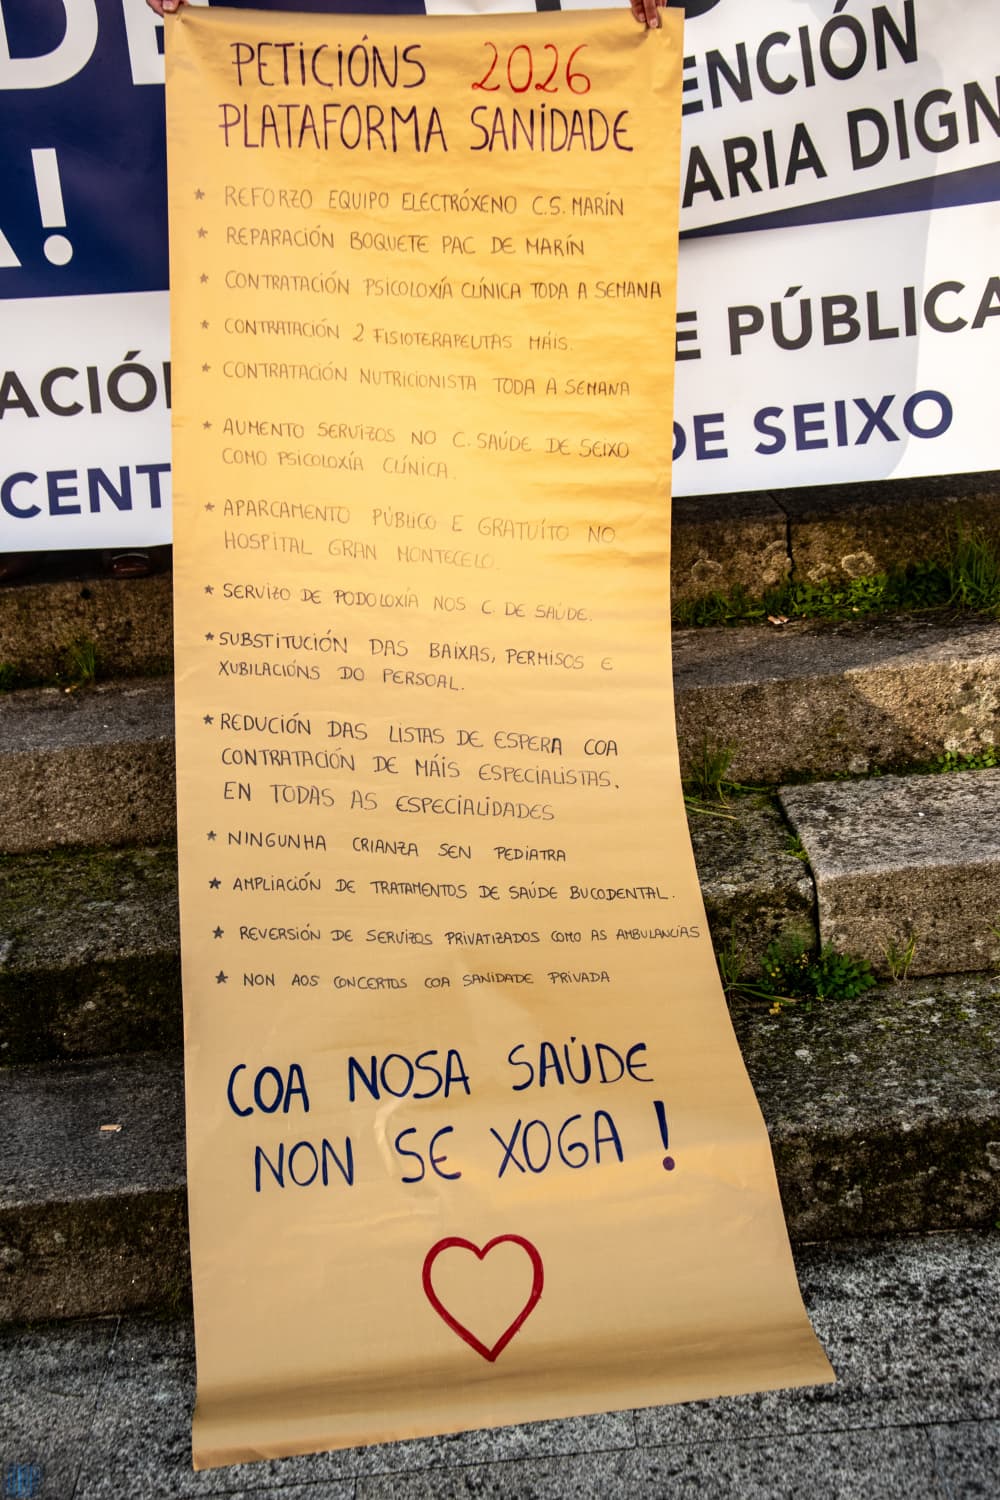 PETICIÓNS 2026
PLATAFORMA SANIDADE
* REFORZO EQUIPO ELECTRÓXENO C.S. MARÍN
* REPARACIÓN BOQUETE PAC DE MARÍN
* CONTRATACIÓN PSICOLOXÍA CLÍNICA TODA A SEMANA
* CONTRATACIÓN 2 FISIOTERAPEUTAS MÁIS.
* CONTRATACIÓN NUTRICIONISTA TODA A SEMANA
* AUMENTO SERVIZOS NO C. SAÚDE DE SEIXO
COMO PSICOLOXÍA CLÍNICA.
* APARCAMENTO PÚBLICO E GRATUÍTO NO
HOSPITAL GRAN MONTECELO.
* SERVIZO DE PODOLOXÍA NOS C. DE SAÚDE.
* SUBSTITUCIÓN DAS BAIXAS, PERMISOS E
XUBILACIÓNS DO PERSOAL.
* REDUCIÓN DAS LISTAS DE ESPERA COA
CONTRATACIÓN DE MÁIS ESPECIALISTAS.
EN TODAS AS ESPECIALIDADES
* NINGUNHA CRIANZA SEN PEDIATRA
* AMPLIACIÓN DE TRATAMENTOS DE SAÚDE BUCODENTAL.
* REVERSIÓN DE SERVIZOS PRIVATIZADOS COMO AS AMBULANCIAS
* NON AOS CONCERTOS COA SANIDADE PRIVADA
COA NOSA SAÚDE
NON SE XOGA !
DE
A!
ENCIÓN
ARIA DIGN
ACIÓ
E PÚBLICA
CENT
DE SEIXO